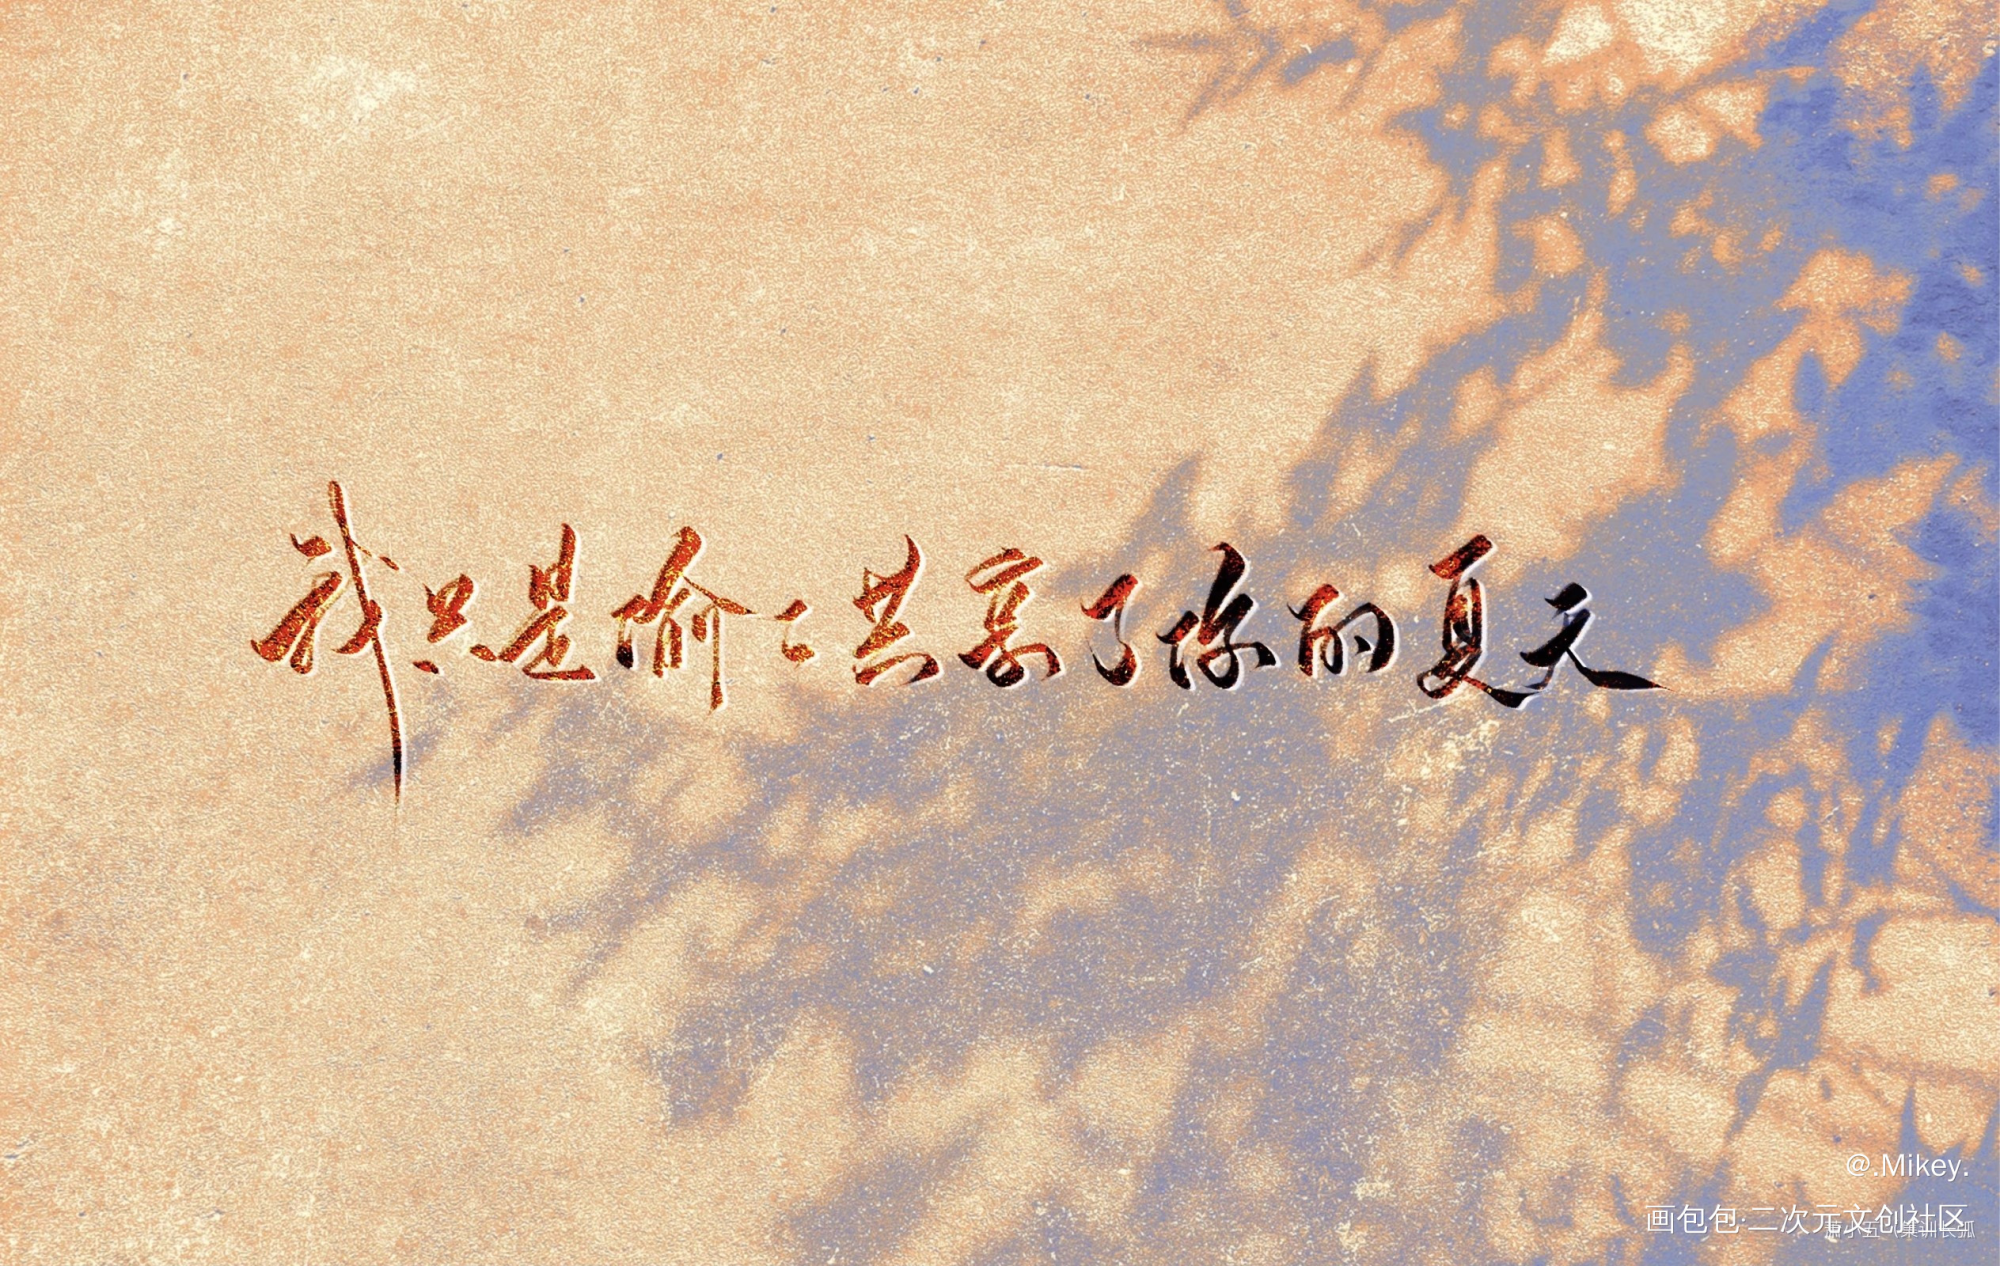 我只是偷偷共享了你的夏天
@.Mikey.
画包包·二次元文创社区